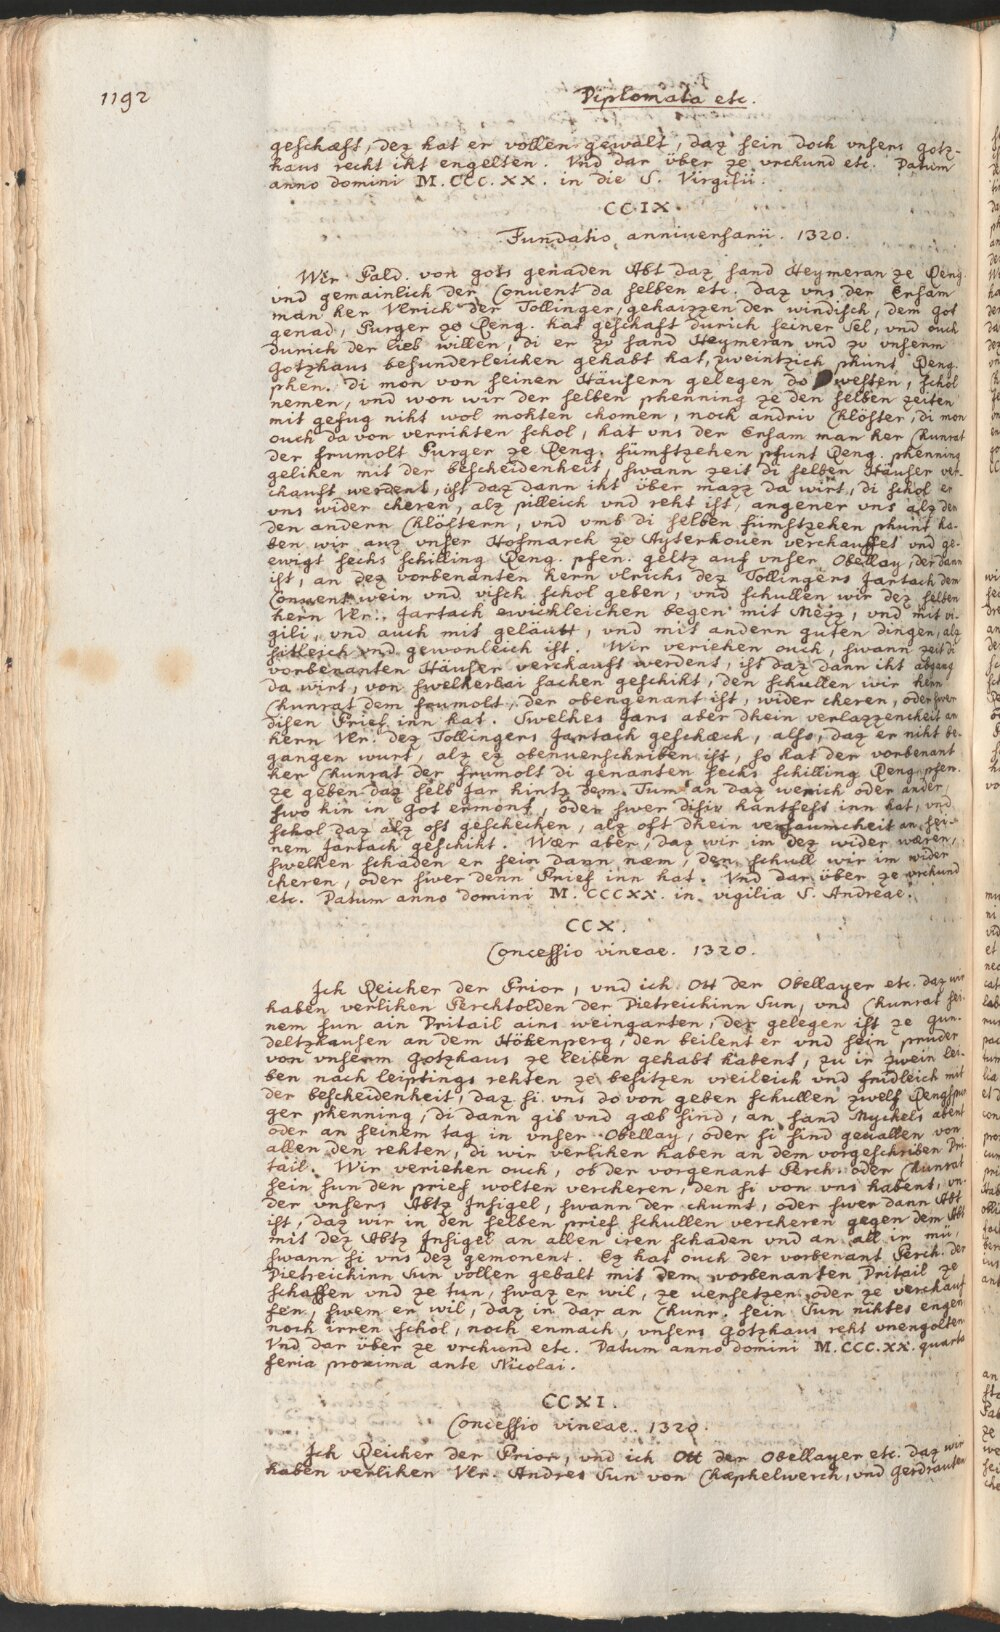 1192
Diplomata etc.
geschæft, dez hat er vollen gewalt, daz sein doch vnsers gotz-
haus recht iht engelten. Vnd dar über ze vrchund etc. Datum
anno domini M. CCC. XX. in die S. Virgilii.
CCIX.
Fundatio anniuersarii. 1320.
Wir Pald. von gots genaden Abt daz sand Heymeran ze Reng.
vnd gemainlich der Conuent da selben etc. daz vns der Ersam
man her Vlrich der Tollinger, gehaizzen der windisch, dem got
genad, Purger ze Reng. hat geschaft durich seiner Sel, vnd ouch
durich der lieb willen, di er ze sand Heymeran vnd ze vnserm
Gotzhaus besunderleichen gehabt hat, zweintzich phunt Reng.
phen. di mon von seinen Häusern gelegen do westen, schol
nemen, vnd won wir der selben phenning ze den selben zeiten
mit gefug niht wol mohten chomen, noch andriv Chlöster, di mon
ouch da von verrihten schol, hat vns der Ersam man her Chunrat
der frumolt Purger ze Reng. fümftzehen phunt Reng. phenning
gelihen mit der bescheidenheit, swann zeit di selben Häuser ver-
chauft werdent, ist daz dann iht über mazz da wirt, di schol er
vns wider cheren, alz pilleich vnd reht ist, angener vns alz den
den andern Chlöstern, vnd vmb di selben fümftzehen phunt ha-
ben wir auz vnser Hofmarch ze Ayterhouen verchauffet vnd ge-
ewigt sechs schilling Reng. pfen. geltz auf vnser Obellay, der dann
ist, an dez vorbenanten hern vlrichs dez Tollingers Jartach dem
Conuent wein vnd visch schol geben, vnd schullen wir dez selben
hern Vlr. Jartach ewichleichen begen mit Mezz, vnd mit vi-
gili, vnd auch mit geläutt, vnd mit andern guten dingen, alz
sitleich vnd gewonleich ist. Wir veriehen ouch, swann zeit di
vorbenanten Häuser verchauft werdent, ist daz dann iht abgang
da wirt, von swelherlai sachen geschiht, den schullen wir hern
Chunrat dem frumolt, der obengenant ist, wider cheren, oder swer
disen Prief inn hat. Swelhes Jars aber dhein verlazzencheit an
hern Vlr. dez Tollingers Jartach geschæch, also, daz er niht be-
gangen wurt, alz ez obenuerschriben ist, so hat der vorbenant
her Chunrat der frumolt di genanten sechs schilling Reng. phen.
ze geben daz selb Jar hintz dem Tum an daz werich oder ander,
swo hin in Got ermont, oder swer disiv hantfest inn hat, vnd
schol daz alz oft geschehen, alz oft dhein versaumcheit an sei-
nem Jartach geschiht. Wær aber, daz wir im dez wider wæren,
swelhen schaden er sein dann næm, den schull wir im wider
cheren, oder swer denn Prief inn hat. Vnd dar über ze vrchund
etc. Datum anno domini M. CCCXX. in vigilia S. Andreae.
CCX.
Concessio vineae. 1320.
Jch Reicher der Prior, vnd ich Ott der Obellayer etc. daz wir
haben verlihen Perchtolden der Dietreichinn Sun, vnd Chunrat sei-
nem sun ain Dritail ains weingarten, der gelegen ist ze Gun-
deltzhausen an dem Hökenperg, den beilent er vnd sein pruder
von vnserm Gotzhaus ze leiben gehabt habent, zu ir zwein lei-
ben nach leiptings rehten ze besitzen vreileich vnd fridleich mit
der bescheidenheit, daz si vns do von geben schullen zwelf Rengspur
ger phenning, di dann gib vnd gæb sind, an sand Mychels abent
oder an seinem tag in vnser Obellay, oder si sind geuallen von
allen den rehten, di wir verlihen haben an dem vorgeschriben Dri-
tail. Wir veriehen ouch, ob der vorgenant Perch. oder Chunrat
sein sun den prief wolten vercheren, den si von vns habent, vn-
der vnsers Abtz Insigel, swann der chumt, oder swer dann Abt
ist, daz wir in den selben prief schullen vercheren gegen dem Abt
mit dez Abtz Insigel an allen iren schaden vnd an all ir mü,
swann si vns dez gemonent. Ez hat ouch der vorbenant Perch. der
Dietreichinn Sun vollen gebalt mit dem vorbenanten Dritail ze
schaffen vnd ze tun, swaz er wil, ze uersetzen oder ze verchauf
fen, swem er wil, daz in dar an Chunr. sein Sun nihtes engen
noch irren schol, noch enmach, vnsers Gotzhaus reht vnengolten
Vnd dar über ze vrchund etc. Datum anno domini M. CCC. XX. quarta
feria proxima ante Nicolai.
CCXI.
Concessio vineae. 1320.
Jch Reicher der Prior, vnd ich Ott der Obellayer etc. daz wir
haben verlihen Vlr. Andres Sun von Chæphelwerch, vnd Gerdrauten